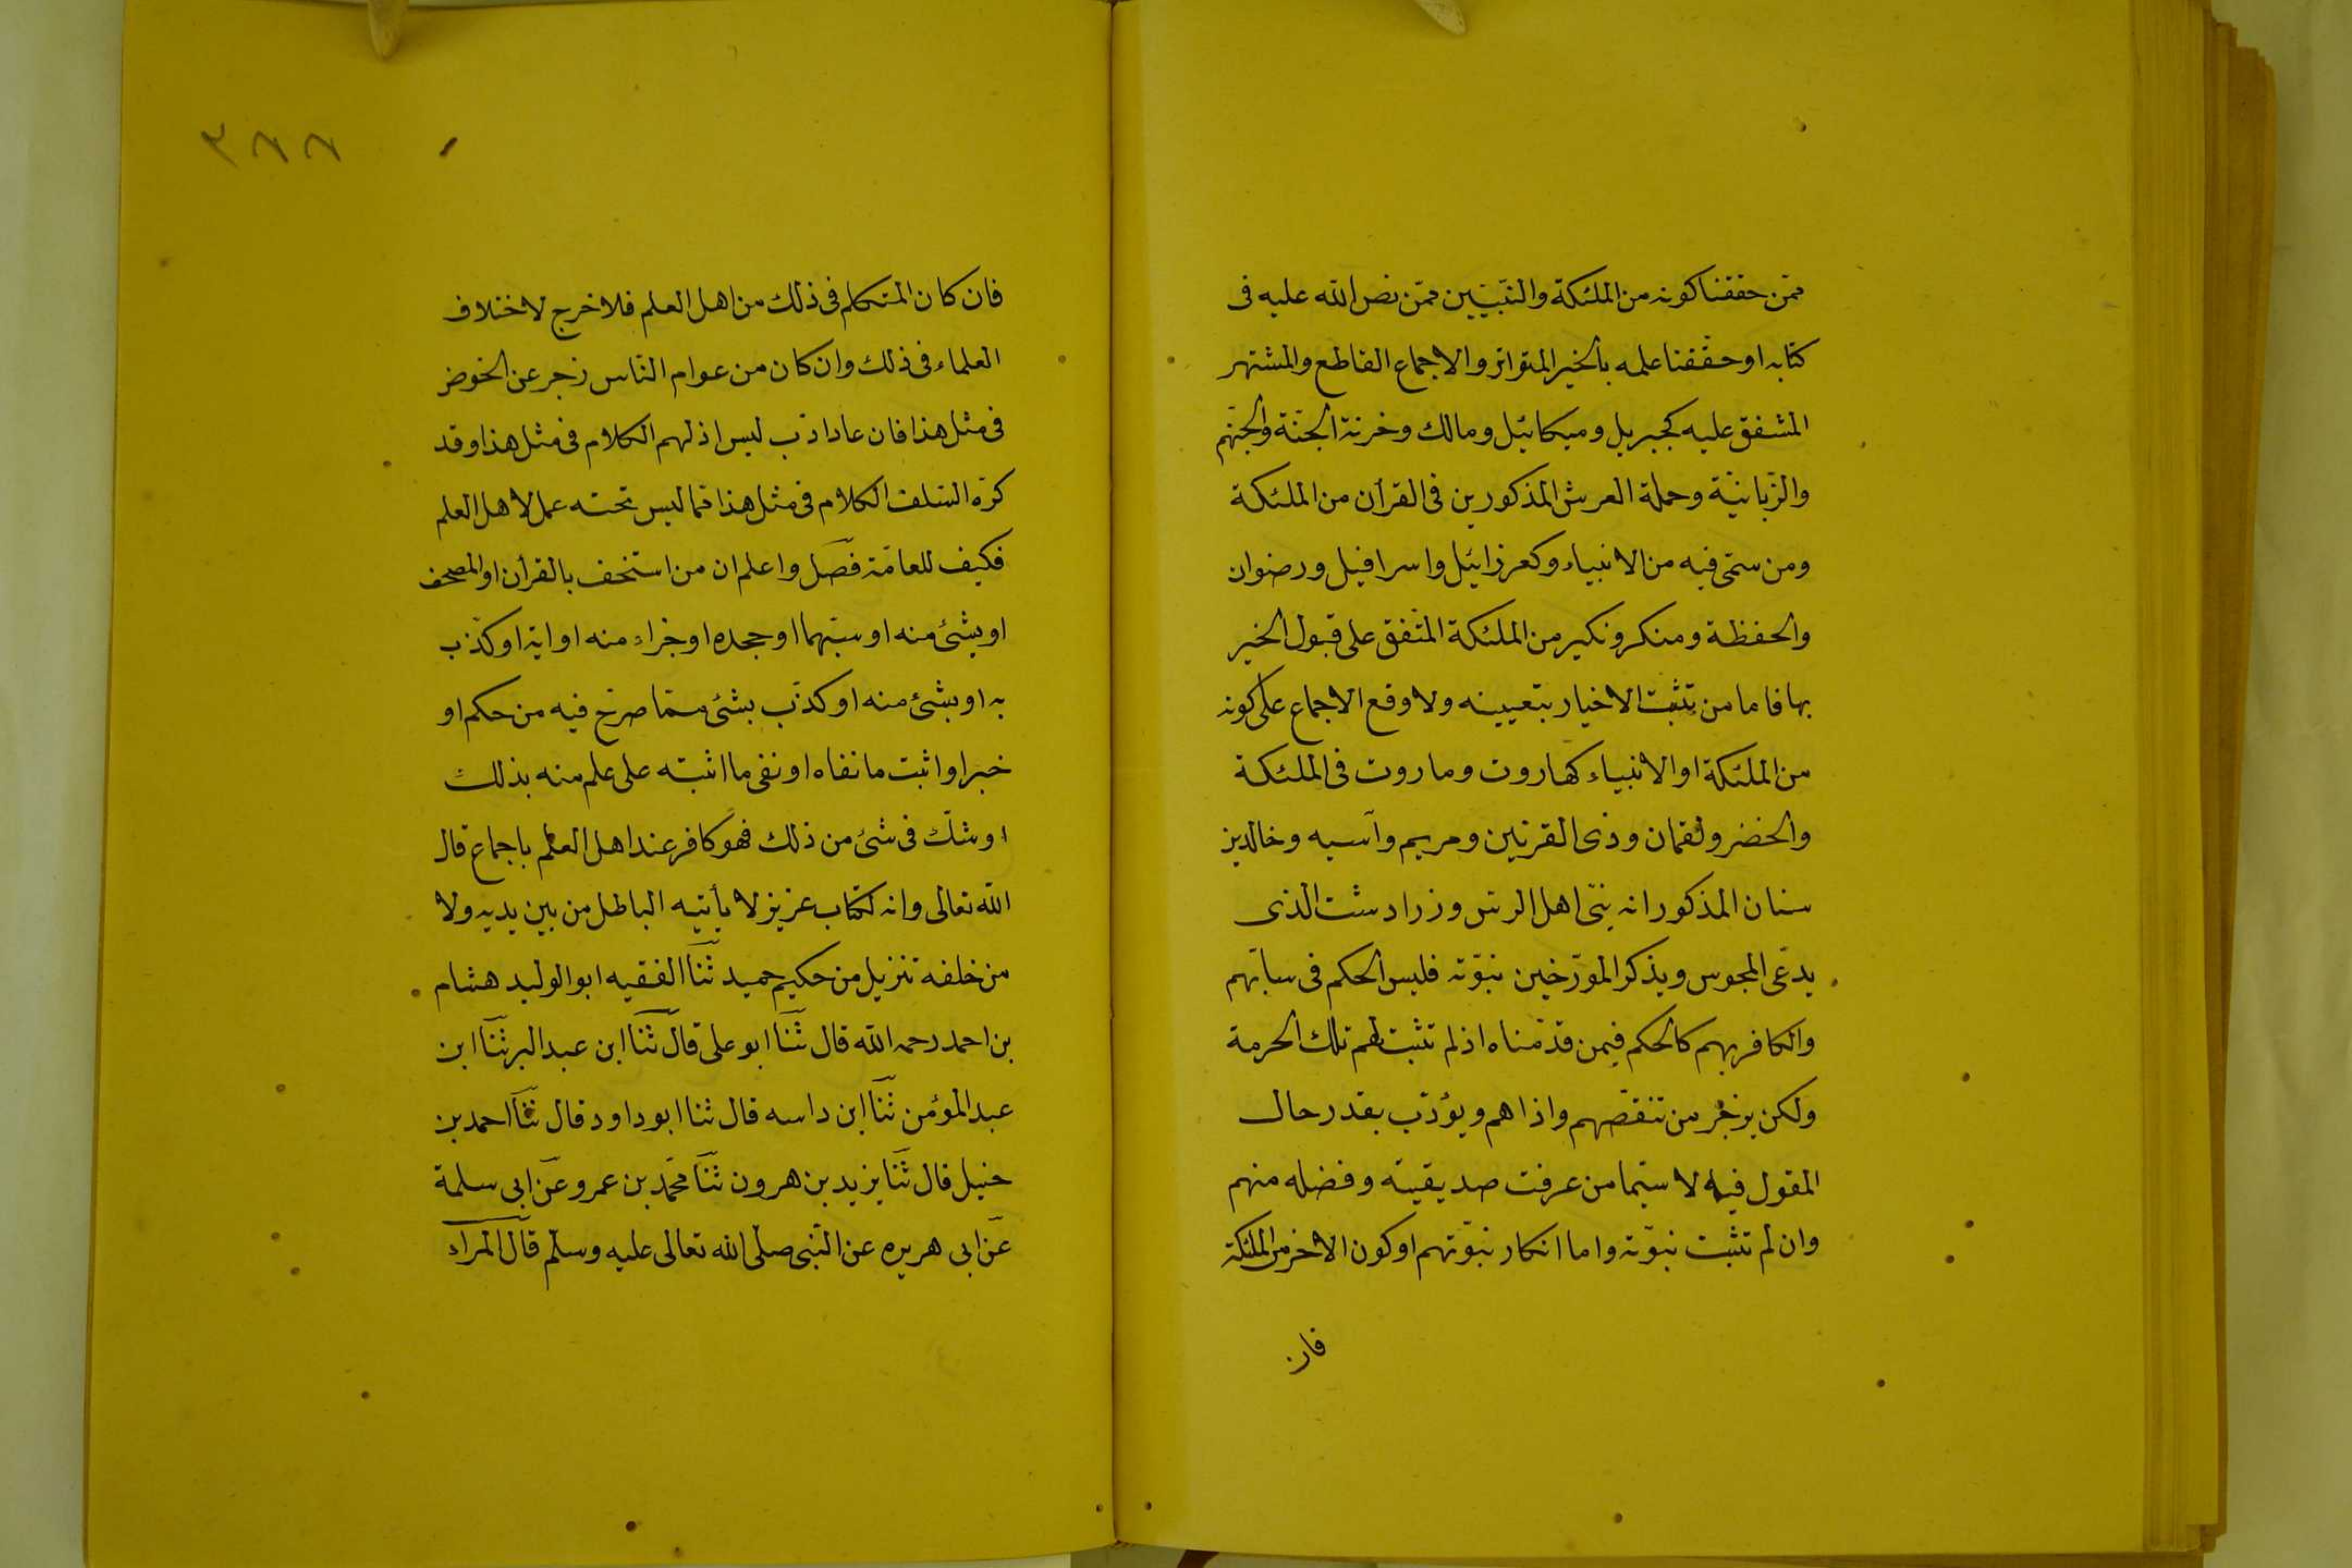 ممّن حققنا كونه من الملئكة والنّبيّين ممّن نصّ الله عليه فى
كتابه او حقّقنا علمه بالخبر المتواتر والاجماع القاطع والمشتهر
المتّفق عليه كجبريل وميكائيل ومالك وخزنة الجنّة والجهنّم
والزّبانيّة وحملة العرش المذكورين فى القرأن من الملئكة
ومن سمّى فيه من الانبياء وكعزرائيل واسرافيل ورضوان
والحفظة ومنكر ونكير من الملئكة المتّفق على قبول الخبر
بها فاما من تثبت الاخبار بتعيينه ولا وقع الاجماع على كونه
من الملئكة او الانبياء كهاروت وماروت فى الملئكة
والخضر ولقمان وذى القرنين ومريم وآسيه وخالدبن
سنان المذكور انه نبّى اهل الرسّ وزرادشت الذى
يدّعى المجوس ويذكر المورّخين نبوّته فليس الحكم فى سابّهم
والكافر بهم كالحكم فيمن قدّمناه اذ لم تثبت لهم تلك الحرمة
ولكن يزجر من تنقّصهم واذاهم ويؤدّب بقدر حال
المقول فيه لا سيّما من عرفت صديقيّته وفضله منهم
وان لم تثبت نبوّته واما انكار نبوّتهم او كون الاخر من الملئكة
فان
٣٨٨
فان كان المتكلم فى ذلك من اهل العلم فلا خرج لاختلاف
العلماء فى ذلك وان كان من عوام النّاس زجر عن الخوض
فى مثل هذا فان عاد ادّب ليس اذ لهم الكلام فى مثل هذا وقد
كره السّلف الكلام فى مثل هذا ممّا ليس تحته عمل لاهل العلم
فكيف للعامّة فصّل واعلم ان من استخف بالقرأن او المصحف
او بشئ منه او سبّهما او جحده او جزاء منه او اية او كذّب
به او بشئ منه او كذّب بشئ ممّا صرّح فيه من حكم او
خبر او اثبت ما نفاه او نفى ما اثبته على علم منه بذلك
او شكّ فى شئ من ذلك فهو كافر عند اهل العلم باجماع قال
الله تعالى وانه لكتاب عزيز لا يأتيه الباطل من بين يديه ولا
من خلفه تنزيل من حكيم حميد ثنا الفقيه ابو الوليد هشام
بن احمد رحمه الله قال ثنا ابو على قال ثنا ابن عبد البر ثنا ابن
عبد المؤمن ثنا ابن داسه قال ثنا ابو داود قال ثنا احمد بن
حنبل قال ثنا يزيد بن هرون ثنا محمّد بن عمرو عن ابى سلمة
عن ابى هريره عن النّبى صلى الله تعالى عليه وسلّم قال المراء